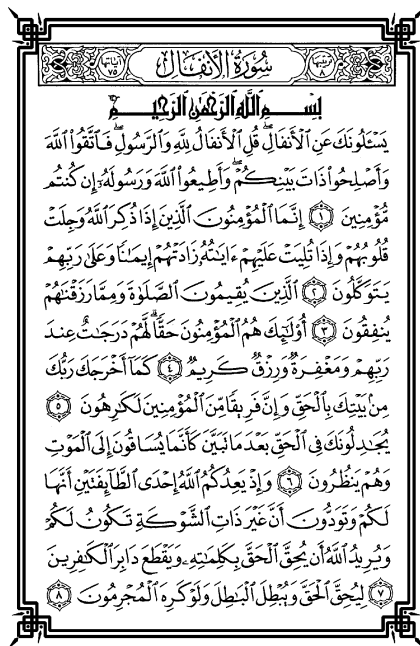 ترتيبها ٨ سُورَةُ الأَنْفَالِ آياتها ٧٥
بِسْمِ اللَّهِ الرَّحْمَٰنِ الرَّحِيمِ
يَسْـَٔلُونَكَ عَنِ ٱلْأَنفَالِۖ قُلِ ٱلْأَنفَالُ لِلَّهِ وَٱلرَّسُولِۖ فَٱتَّقُوا۟ ٱللَّهَ
وَأَصْلِحُوا۟ ذَاتَ بَيْنِكُمْۖ وَأَطِيعُوا۟ ٱللَّهَ وَرَسُولَهُۥٓ إِن كُنتُم
مُّؤْمِنِينَ ۝١ إِنَّمَا ٱلْمُؤْمِنُونَ ٱلَّذِينَ إِذَا ذُكِرَ ٱللَّهُ وَجِلَتْ
قُلُوبُهُمْ وَإِذَا تُلِيَتْ عَلَيْهِمْ ءَايَـٰتُهُۥ زَادَتْهُمْ إِيمَـٰنًا وَعَلَىٰ رَبِّهِمْ
يَتَوَكَّلُونَ ۝٢ ٱلَّذِينَ يُقِيمُونَ ٱلصَّلَوٰةَ وَمِمَّا رَزَقْنَـٰهُمْ
يُنفِقُونَ ۝٣ أُو۟لَـٰٓئِكَ هُمُ ٱلْمُؤْمِنُونَ حَقًّاۚ لَّهُمْ دَرَجَـٰتٌ عِندَ
رَبِّهِمْ وَمَغْفِرَةٌ وَرِزْقٌ كَرِيمٌ ۝٤ كَمَآ أَخْرَجَكَ رَبُّكَ
مِنۢ بَيْتِكَ بِٱلْحَقِّ وَإِنَّ فَرِيقًا مِّنَ ٱلْمُؤْمِنِينَ لَكَـٰرِهُونَ ۝٥
يُجَـٰدِلُونَكَ فِى ٱلْحَقِّ بَعْدَ مَا تَبَيَّنَ كَأَنَّمَا يُسَاقُونَ إِلَى ٱلْمَوْتِ
وَهُمْ يَنظُرُونَ ۝٦ وَإِذْ يَعِدُكُمُ ٱللَّهُ إِحْدَى ٱلطَّآئِفَتَيْنِ أَنَّهَا
لَكُمْ وَتَوَدُّونَ أَنَّ غَيْرَ ذَاتِ ٱلشَّوْكَةِ تَكُونُ لَكُمْ
وَيُرِيدُ ٱللَّهُ أَن يُحِقَّ ٱلْحَقَّ بِكَلِمَـٰتِهِۦ وَيَقْطَعَ دَابِرَ ٱلْكَـٰفِرِينَ
۝٧ لِيُحِقَّ ٱلْحَقَّ وَيُبْطِلَ ٱلْبَـٰطِلَ وَلَوْ كَرِهَ ٱلْمُجْرِمُونَ ۝٨